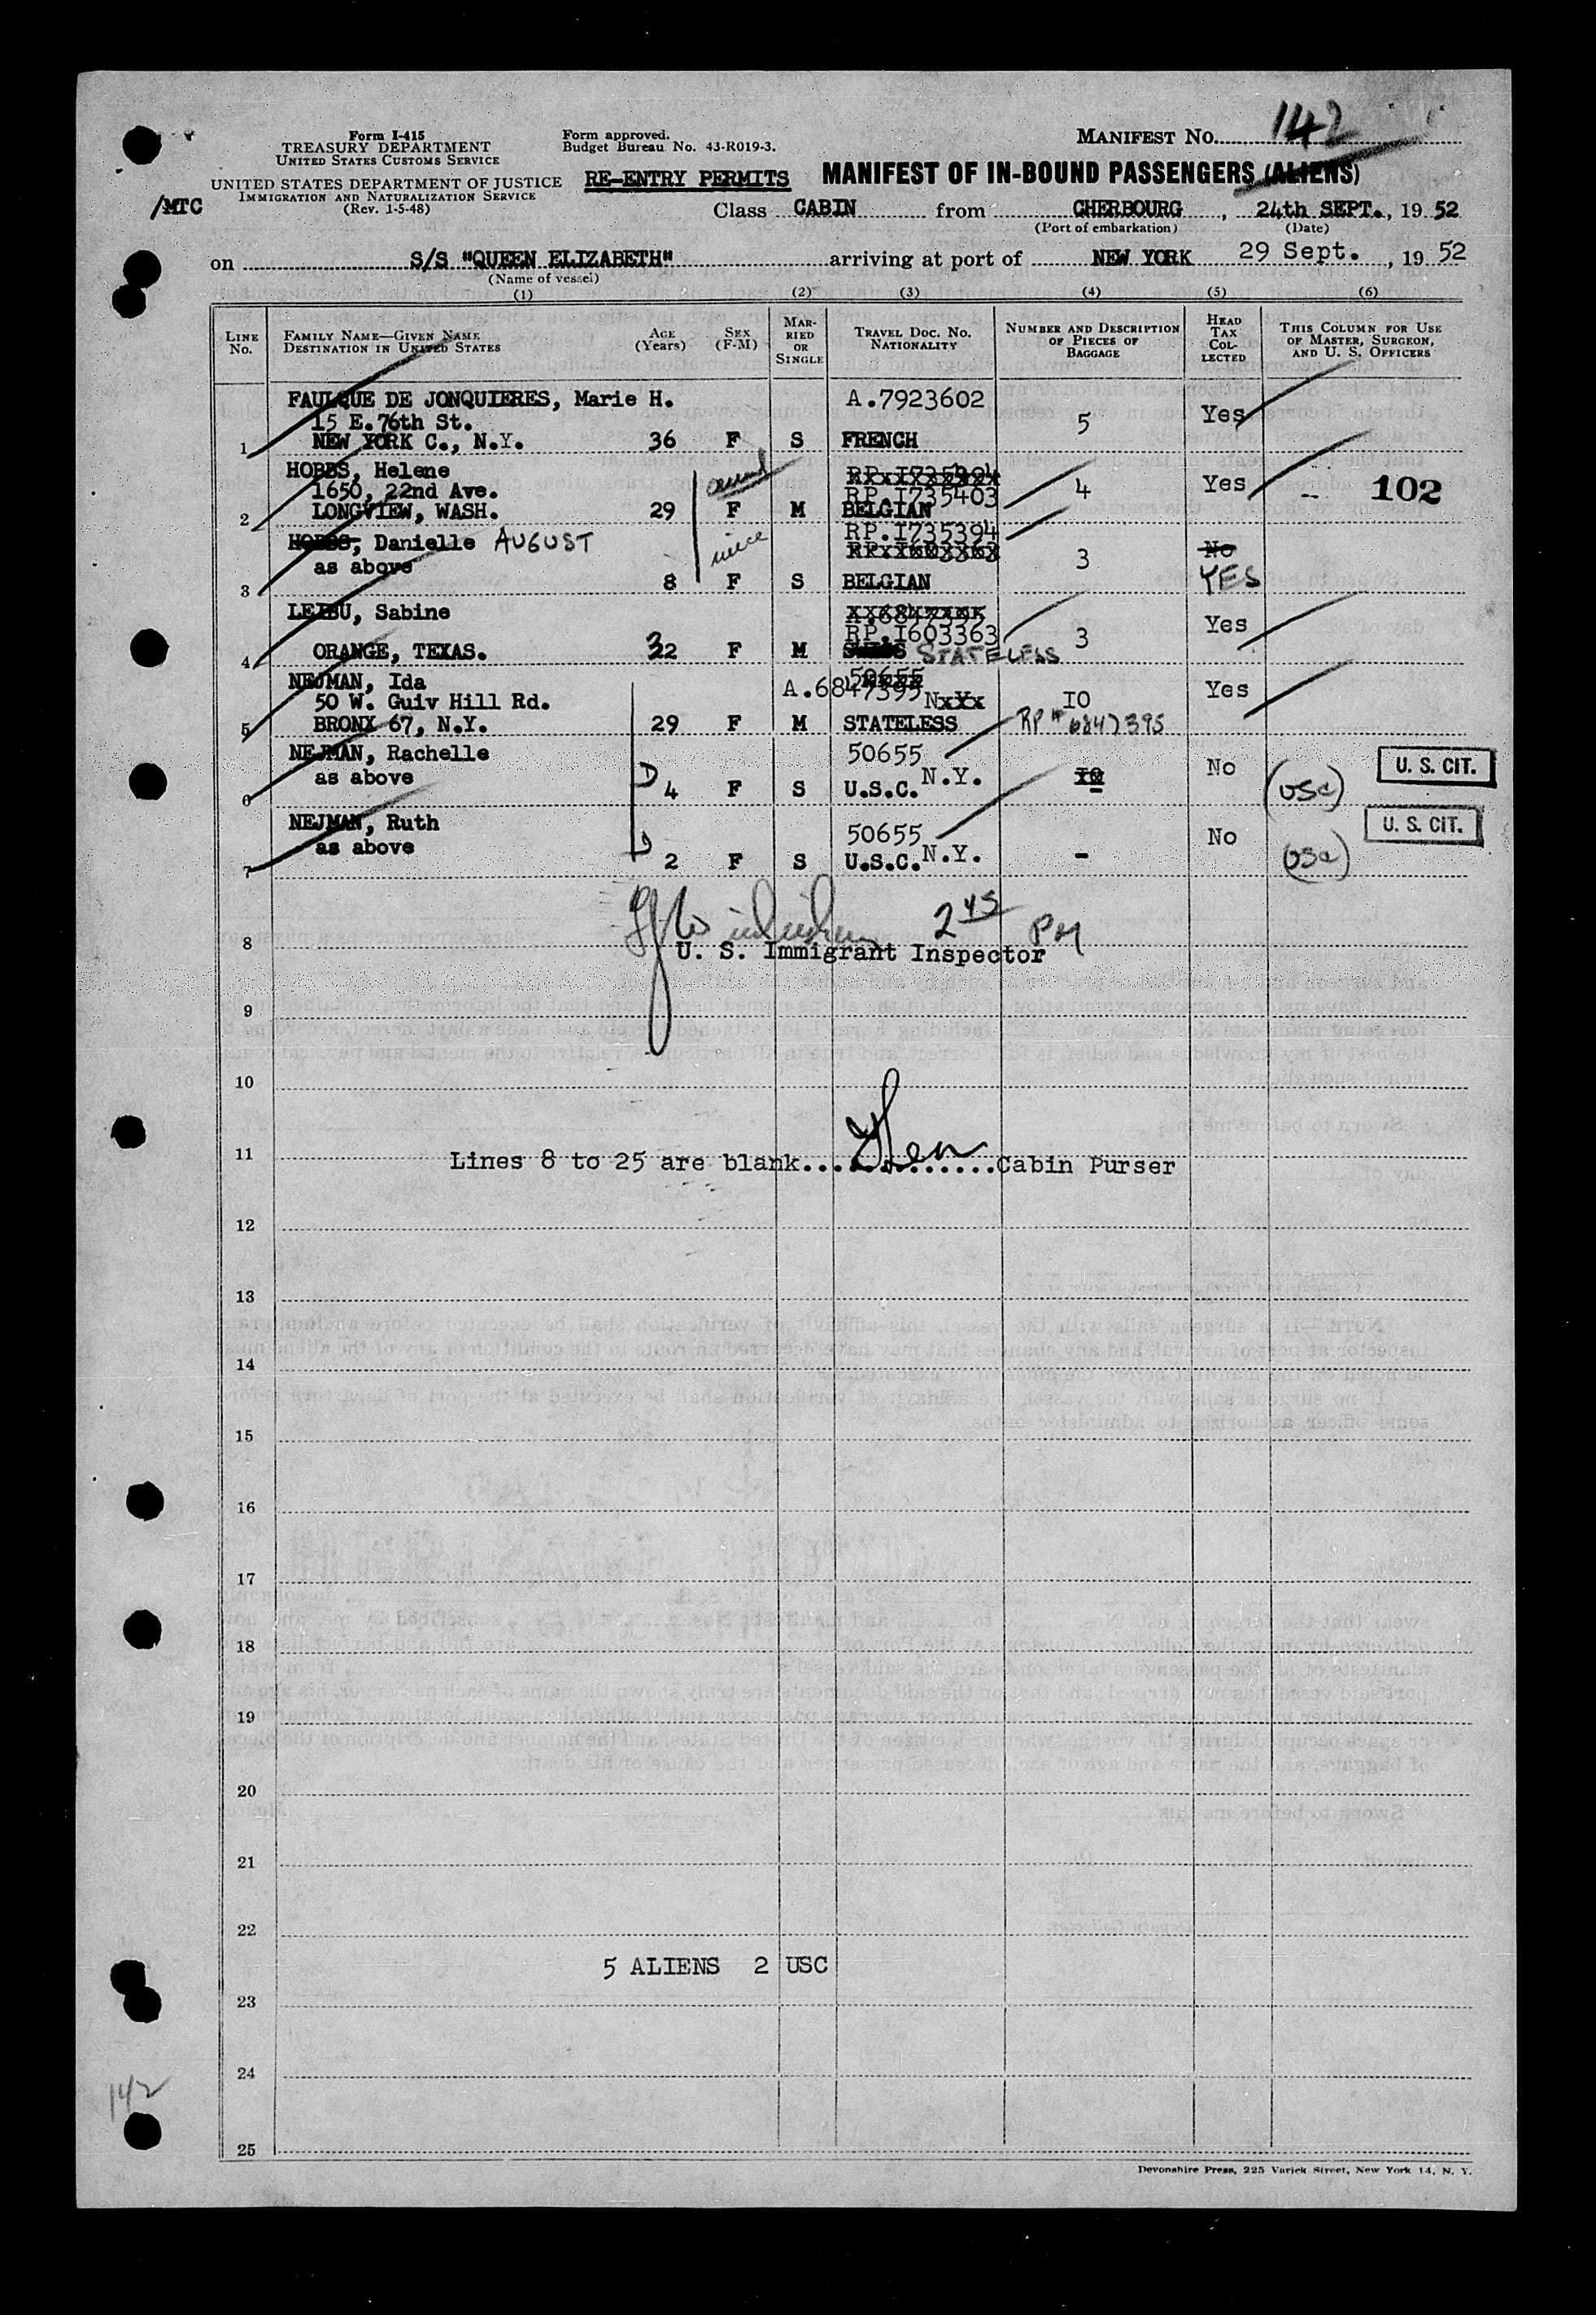 Form I-415
TREASURY DEPARTMENT
UNITED STATES CUSTOMS SERVICE
UNITED STATES DEPARTMENT OF JUSTICE
IMMIGRATION AND NATURALIZATION SERVICE
(Rev. 1-5-48)
/MTC
Form approved.
Budget Bureau No. 43-R019-3.
RE-ENTRY PERMITS
MANIFEST NO. 142
MANIFEST OF IN-BOUND PASSENGERS (ALIENS)
Class CABIN from CHERBOURG, 24th SEPT., 19 52
(Port of embarkation) (Date)
on S/S "QUEEN ELIZABETH" arriving at port of NEW YORK 29 Sept., 19 52
(Name of vessel)
(1) (2) (3) (4) (5) (6)
LINE No. FAMILY NAME—GIVEN NAME DESTINATION IN UNITED STATES AGE (Years) SEX (F-M) MARRIED OR SINGLE TRAVEL DOC. NO. NATIONALITY NUMBER AND DESCRIPTION OF PIECES OF BAGGAGE HEAD TAX COLLECTED THIS COLUMN FOR USE OF MASTER, SURGEON, AND U. S. OFFICERS
FAULQUE DE JONQUIERES, Marie H. A.7923602
15 E. 76th St. 5 Yes
1 NEW YORK C., N.Y. 36 F S FRENCH
HOBBS, Helene RP.I735394
1650, 22nd Ave. RP.I735403 4 Yes 102
2 LONGVIEW, WASH. 29 F M BELGIAN
HOBBS, Danielle AUGUST RP.I735394
niece RP.I603363 3 No
as above
3 8 F S BELGIAN YES
LEIBU, Sabine A.6847395
RP.I603363 3 Yes
4 ORANGE, TEXAS. 32 F M STATELESS
NEJMAN, Ida 50655
50 W. Guiv Hill Rd. A.6847395 N.Y. 10 Yes
5 BRONX 67, N.Y. 29 F M STATELESS RP# 6847395
NEJMAN, Rachelle 50655
as above N.Y. 10 No U. S. CIT.
6 D 4 F S U.S.C. (USC)
NEJMAN, Ruth 50655 U. S. CIT.
as above N.Y. No
7 D 2 F S U.S.C. - (USC)
2 45 PM
8 U. S. Immigrant Inspector
9
10
11 Lines 8 to 25 are blank..............Cabin Purser
12
13
14
15
16
17
18
19
20
21
22
5 ALIENS 2 USC
23
24
142
25
Devonshire Press, 225 Varick Street, New York 14, N. Y.